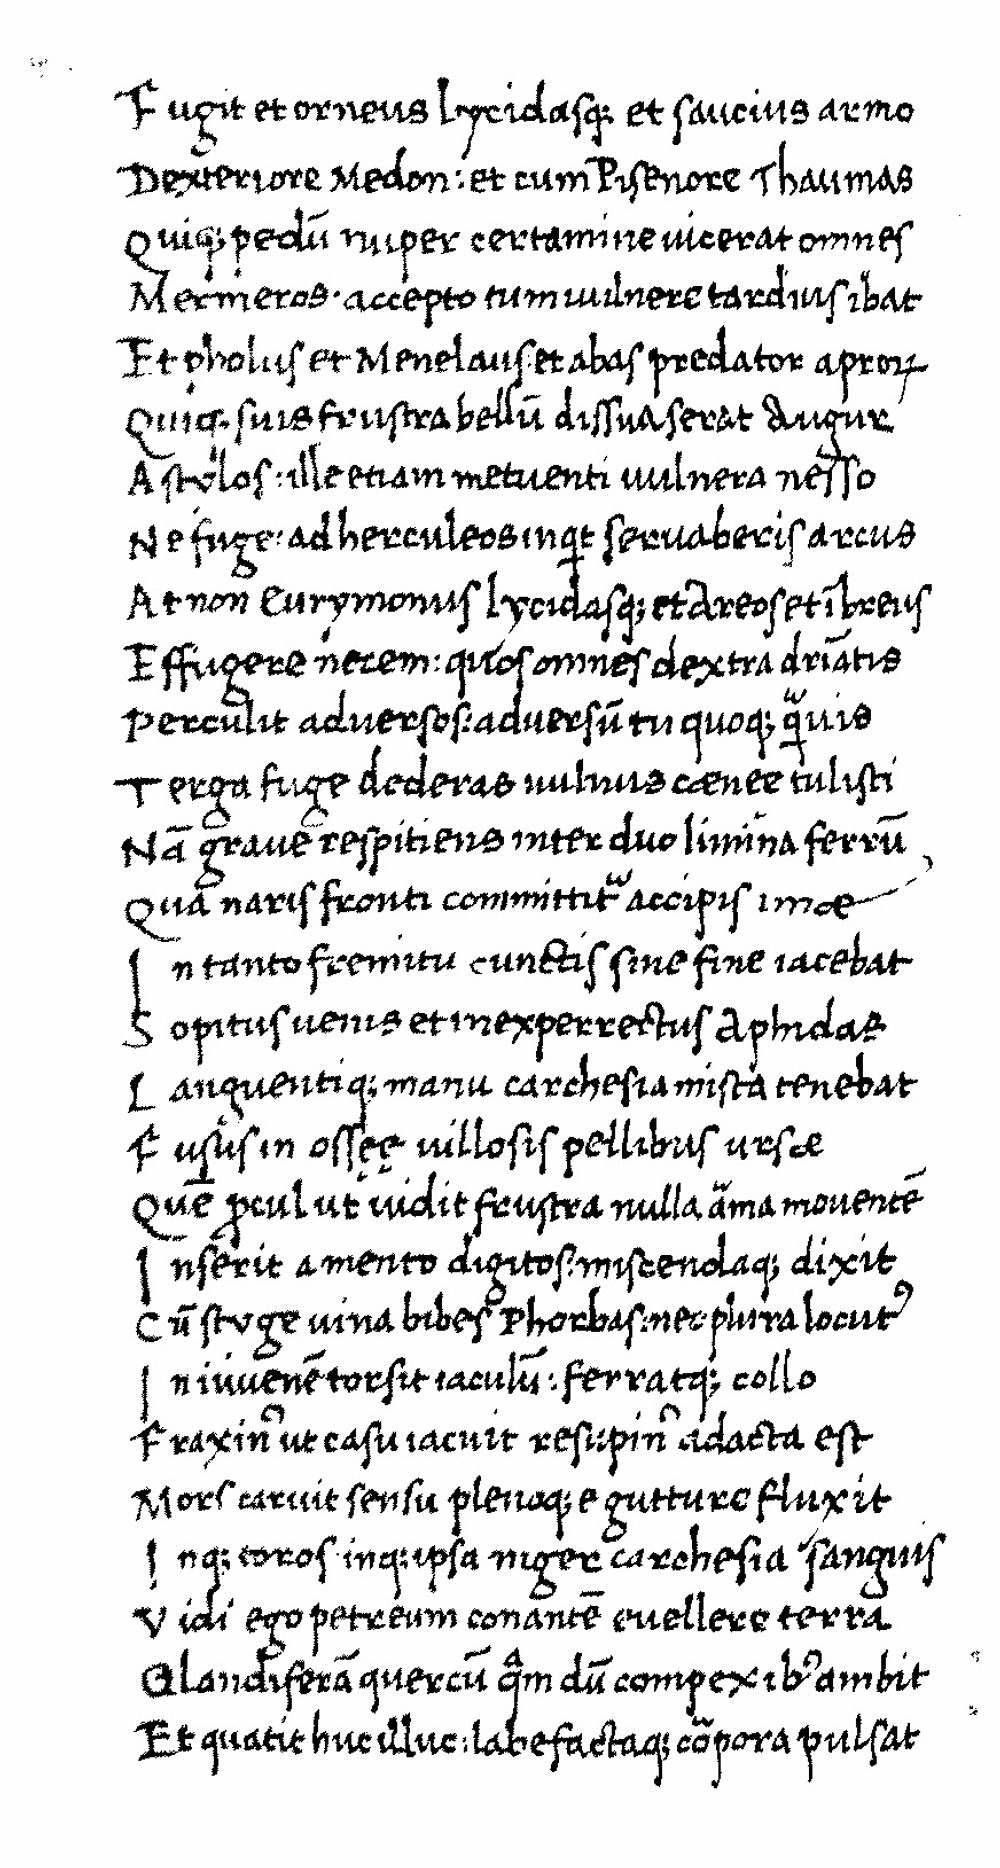 Fugit et orneus lycidasq; et saucius armo
Dexteriore Medon: et cum Pisenore Thaumas
Quiq; pedū nuper certamine vicerat omnes
Mermeros· accepto tum vulnere tardius ibat
Et pholus et Menelaus: et abas predator aproꝝ
Quiq; suis frustra bellū dissuaserat Augur
Astylos: ille etiam metuenti vulnera nesso
Ne fuge: ad herculeos inqͥt servaberis arcus
At non Eurymonus lycidasq; et Areos et ībreus
Effugere necem: quos omnes dextra drīatis
Perculit adversos: adversū tu quoq; qᷓuis
Terga fuge dederas vulnus cænee tulisti
Nā grave respitiens inter duo limina ferrū
Qua naris fronti committitᷓ accipis imæ
In tanto fremitu cunctis sine fine iacebat
Sopitus venis et inexperrectus Aphidas
Languentiq; manu carchesia mista tenebat
Fusus in ossęę villosis pellibus ursæ
Quē ꝓcul ut vidit frustra nulla aᷓma moventē
Inserit amento digitos: miscendaq; dixit
Cū styge vina bibes Phorbas: nec plura locutꝰ
In iuvenē torsit iaculū: ferratq; collo
Fraxinꝰ ut casu iacuit resupinꝰ adacta est
Mors caruit sensu plenoq; e gutture fluxit
Inq; toros· inq; ipsa niger carchesia sanguis
Vidi ego petreum conantē evellere terra
Glandiferā quercū qᷓm dū compexibꝰ ambit
Et quatit huc illuc: labefactaq; coᷓpora pulsat